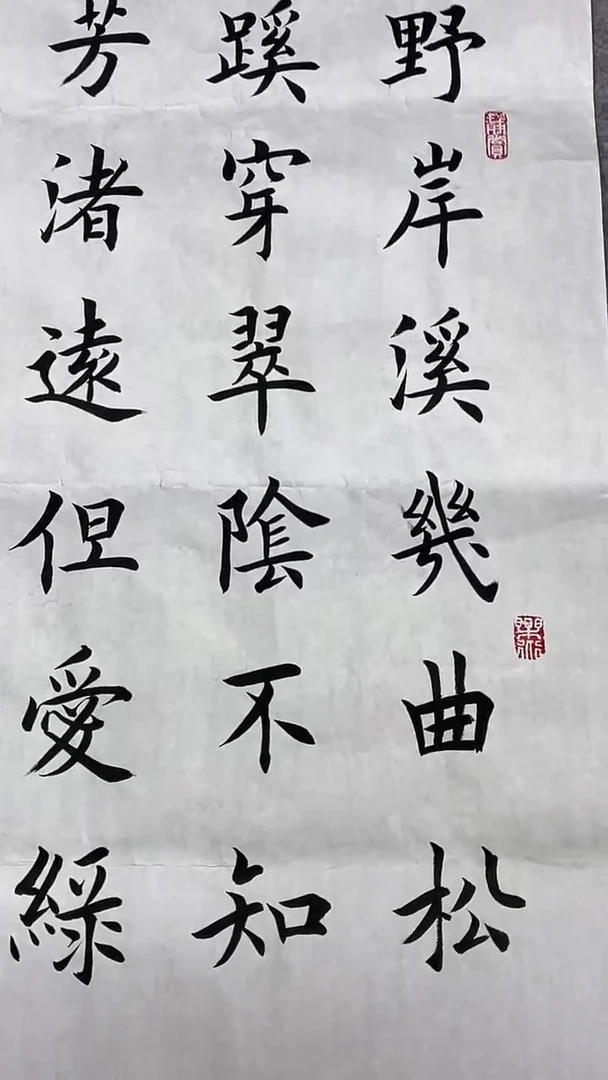 野岸溪幾曲松
蹊穿翠陰不知
芳渚遠但愛綠